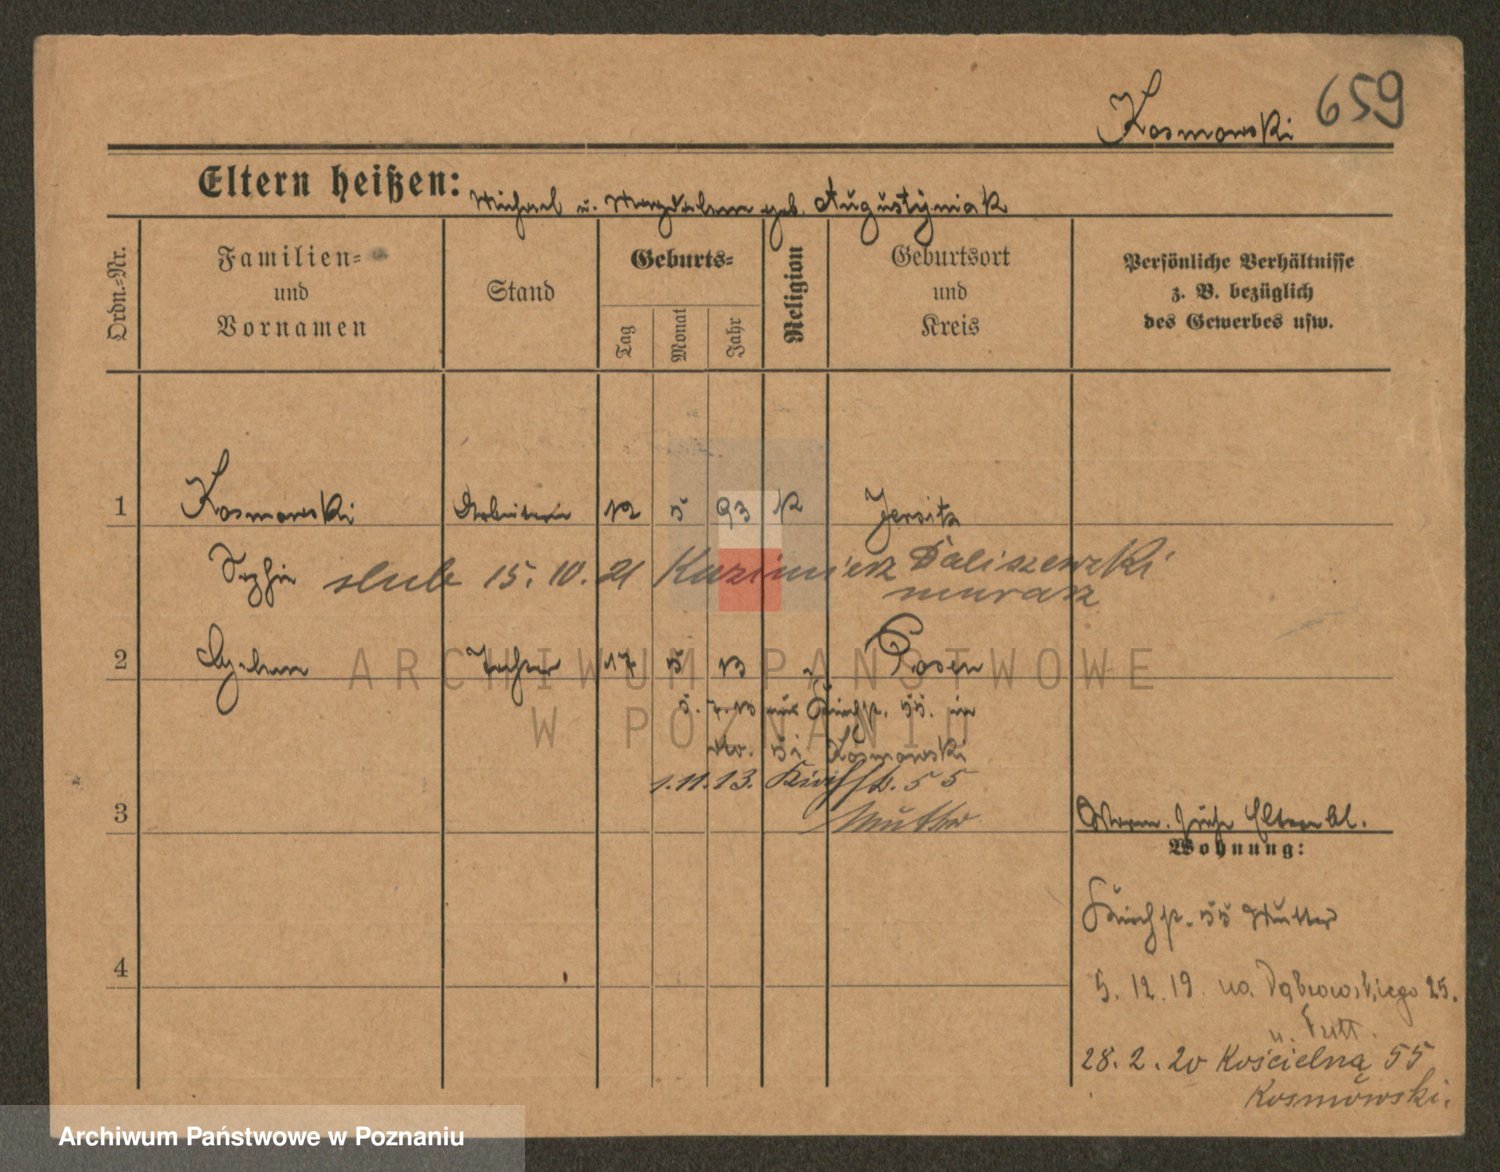 Kosmowski 659
Eltern heißen: Michael u. Magdalena geb. Augustyniak
Ordn.-Nr.
Familien-
und
Vornamen
Stand
Geburts-
Tag
Monat
Jahr
Religion
Geburtsort
und
Kreis
Persönliche Verhältnisse
z. B. bezüglich
des Gewerbes usw.
1 Kosmowski Arbeiterin 12 5 93 K Jersitz
Sophie ślub 15. 10. 21 Kazimierz Daliszewski
murarz
2 Tochter 17 5 13 Posen
ARCHIWUM PAŃSTWOWE
W POZNANIU
Kirchstr. 55. in
Kosmowski
1.11.13. Kirchstr. 55
Mutter
3
Eltern bl.
Wohnung:
Kirchstr. 55 Mutter
4
5. 12. 19. Dąbrowskiego 25.
28. 2. 20 Kościelna 55
Kosmowski.
Archiwum Państwowe w Poznaniu